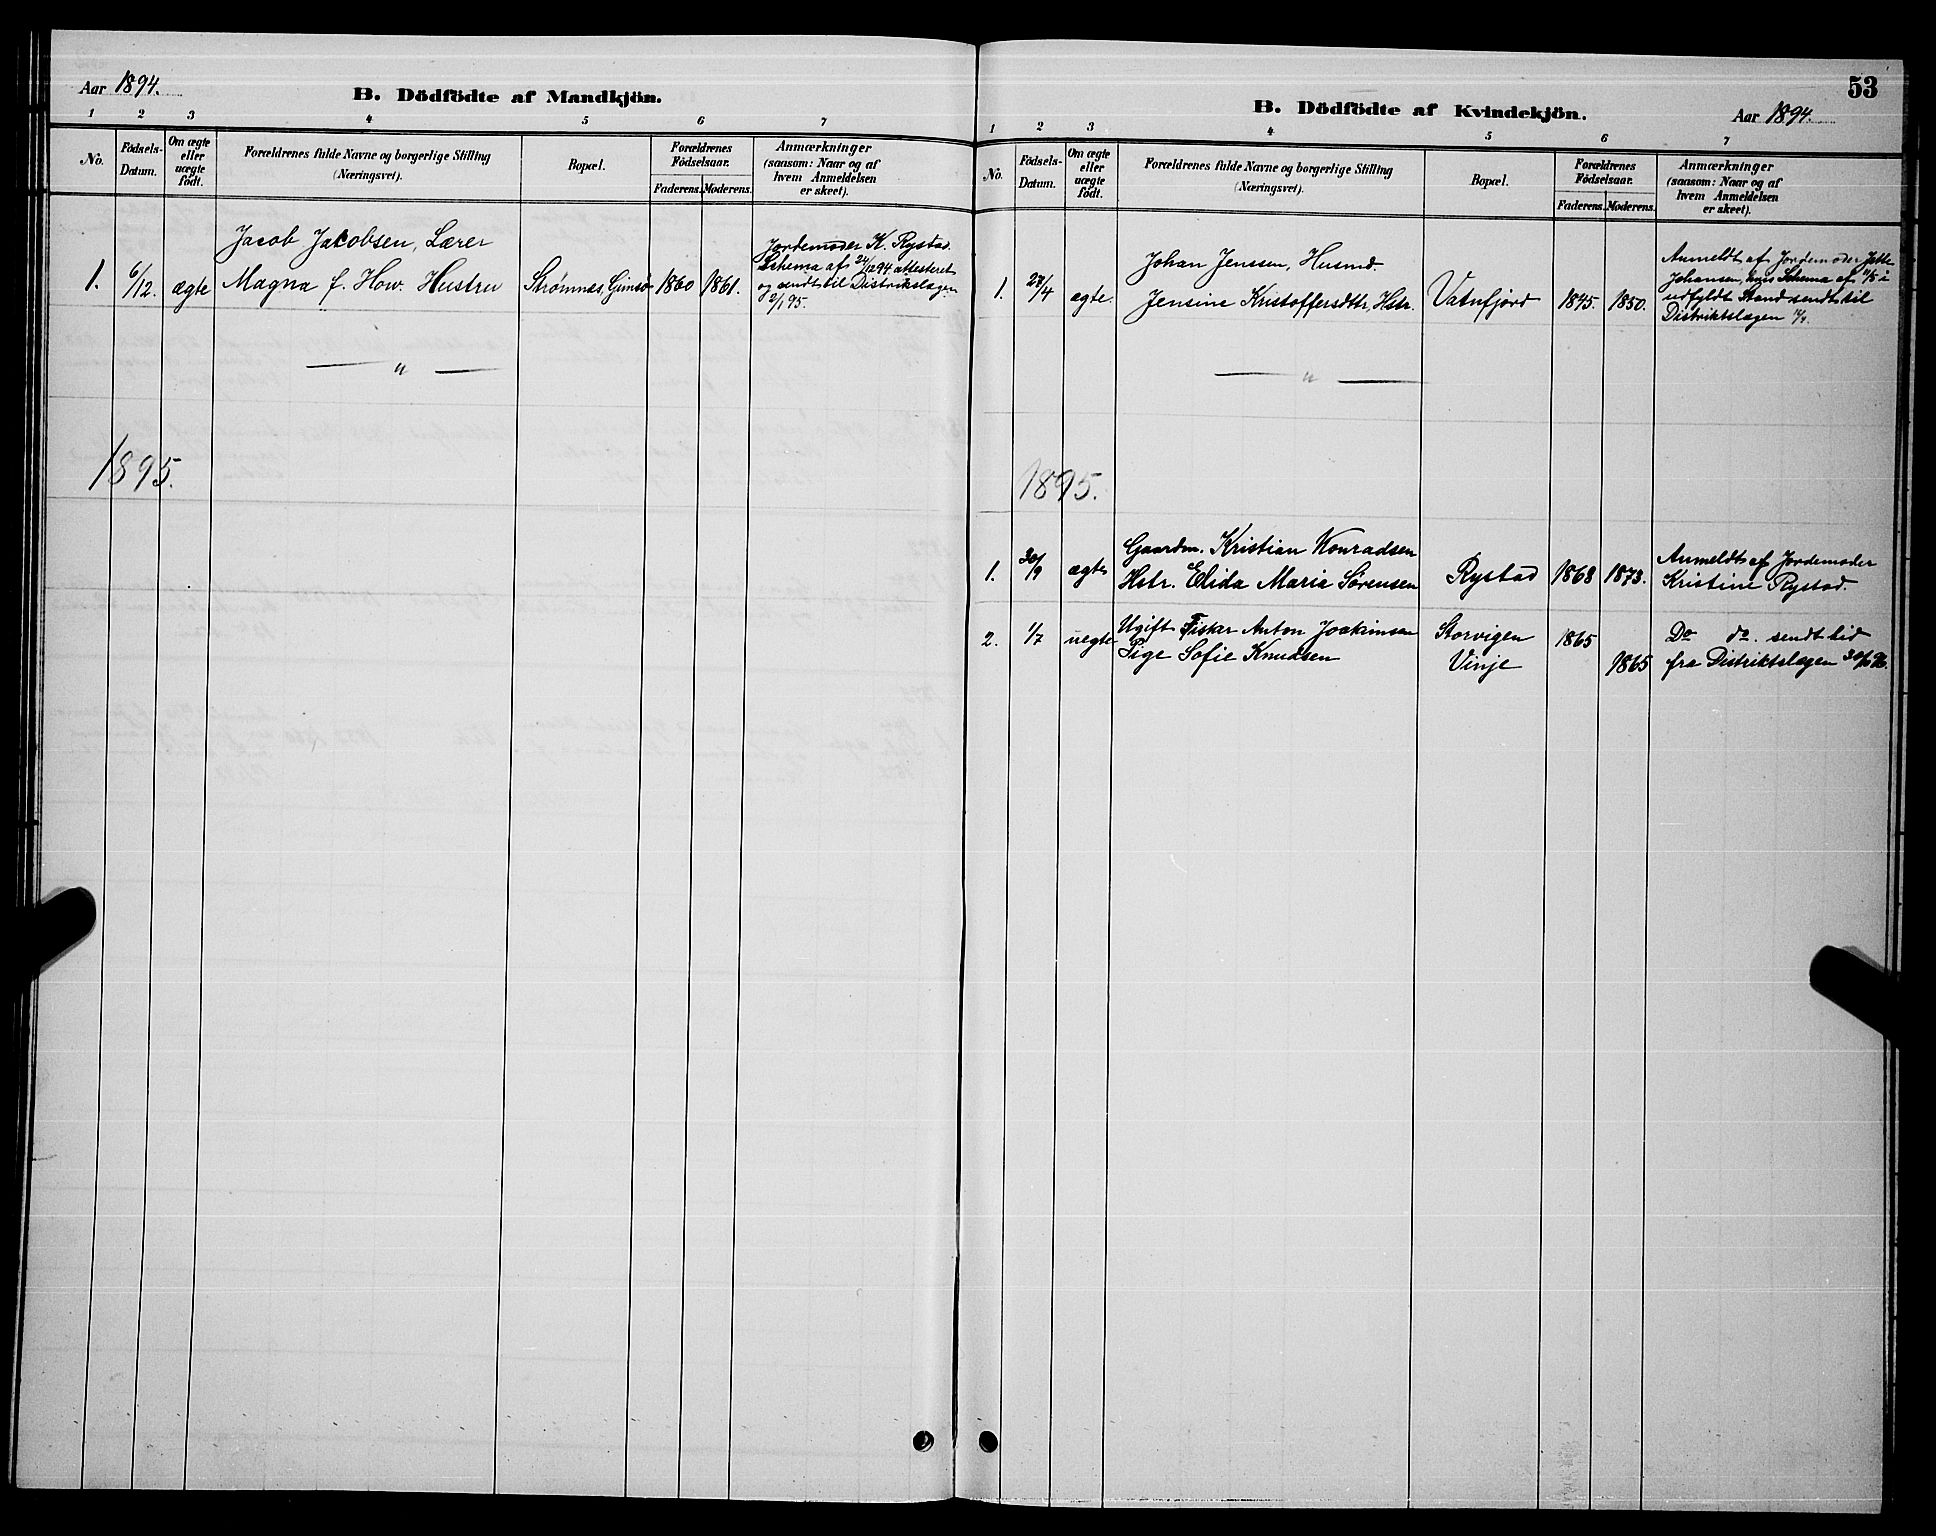 Aar 1894.
B. Dödfödte af Mandkjön.
1 2 3 4 5 6 7
No.
Födsels-
Datum.
Om ægte
eller
uægte
födt.
Forældrenes fulde Navne og borgerlige Stilling
(Næringsvei).
Bopæl.
Forældrenes
Födselsaar.
Faderens. Moderens.
Anmærkninger
(saasom: Naar og af
hvem Anmeldelsen
er skeet).
Jacob Jakobsen, Lærer
1. 6/12. ægte Magna f. How. Hustru Strømnes, Gimsø 1860 1861.
Jordemoder K. Rystad.
Schema af 24/12 94 attesteret
og sendt til Distrikslægen
2/1 95.
— " —
1895.
53
B. Dödfödte af Kvindekjön.
Aar 1894.
1 2 3 4 5 6 7
No.
Födsels-
Datum.
Om ægte
eller
uægte
födt.
Forældrenes fulde Navne og borgerlige Stilling
(Næringsvei).
Bopæl.
Forældrenes
Födselsaar.
Faderens. Moderens.
Anmærkninger
(saasom: Naar og af
hvem Anmeldelsen
er skeet).
Johan Jenssen, Husmd.
1. ægte. Jensine Kristoffersdttr, Hstr. Vatnfjord 1845. 1850.
Anmeldt af Jordemoder
Johansen, Schema af i
udfyldt Stand sendt til
Distriktslægen
— " —
1895.
Gaardm. Kristian Konradsen
1. 30/9 ægte Hstr. Elida Maria Sørensen Rystad 1868 1873.
Anmeldt af Jordemoder
Kristine Rystad.
2. 1/7 uegte Ugift Fisker Anton Joakimsen Storvigen 1865 Do do. sendt tid
Pige Sofie Knudsen Vinje 1865 fra Distriktslægen